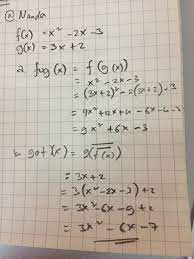 @ Nanda
f(x) = x² - 2x - 3
g(x) = 3x + 2
a. fog (x) = f (g(x))
= x² - 2x - 3
= (3x+2)² - 2(3x+2) - 3
= 9x² + 12x + 4 - 6x - 4 - 3
= 9x² + 6x - 3
b. gof (x) = g(f(x))
= 3x + 2
= 3(x² - 2x - 3) + 2
= 3x² - 6x - 9 + 2
= 3x² - 6x - 7